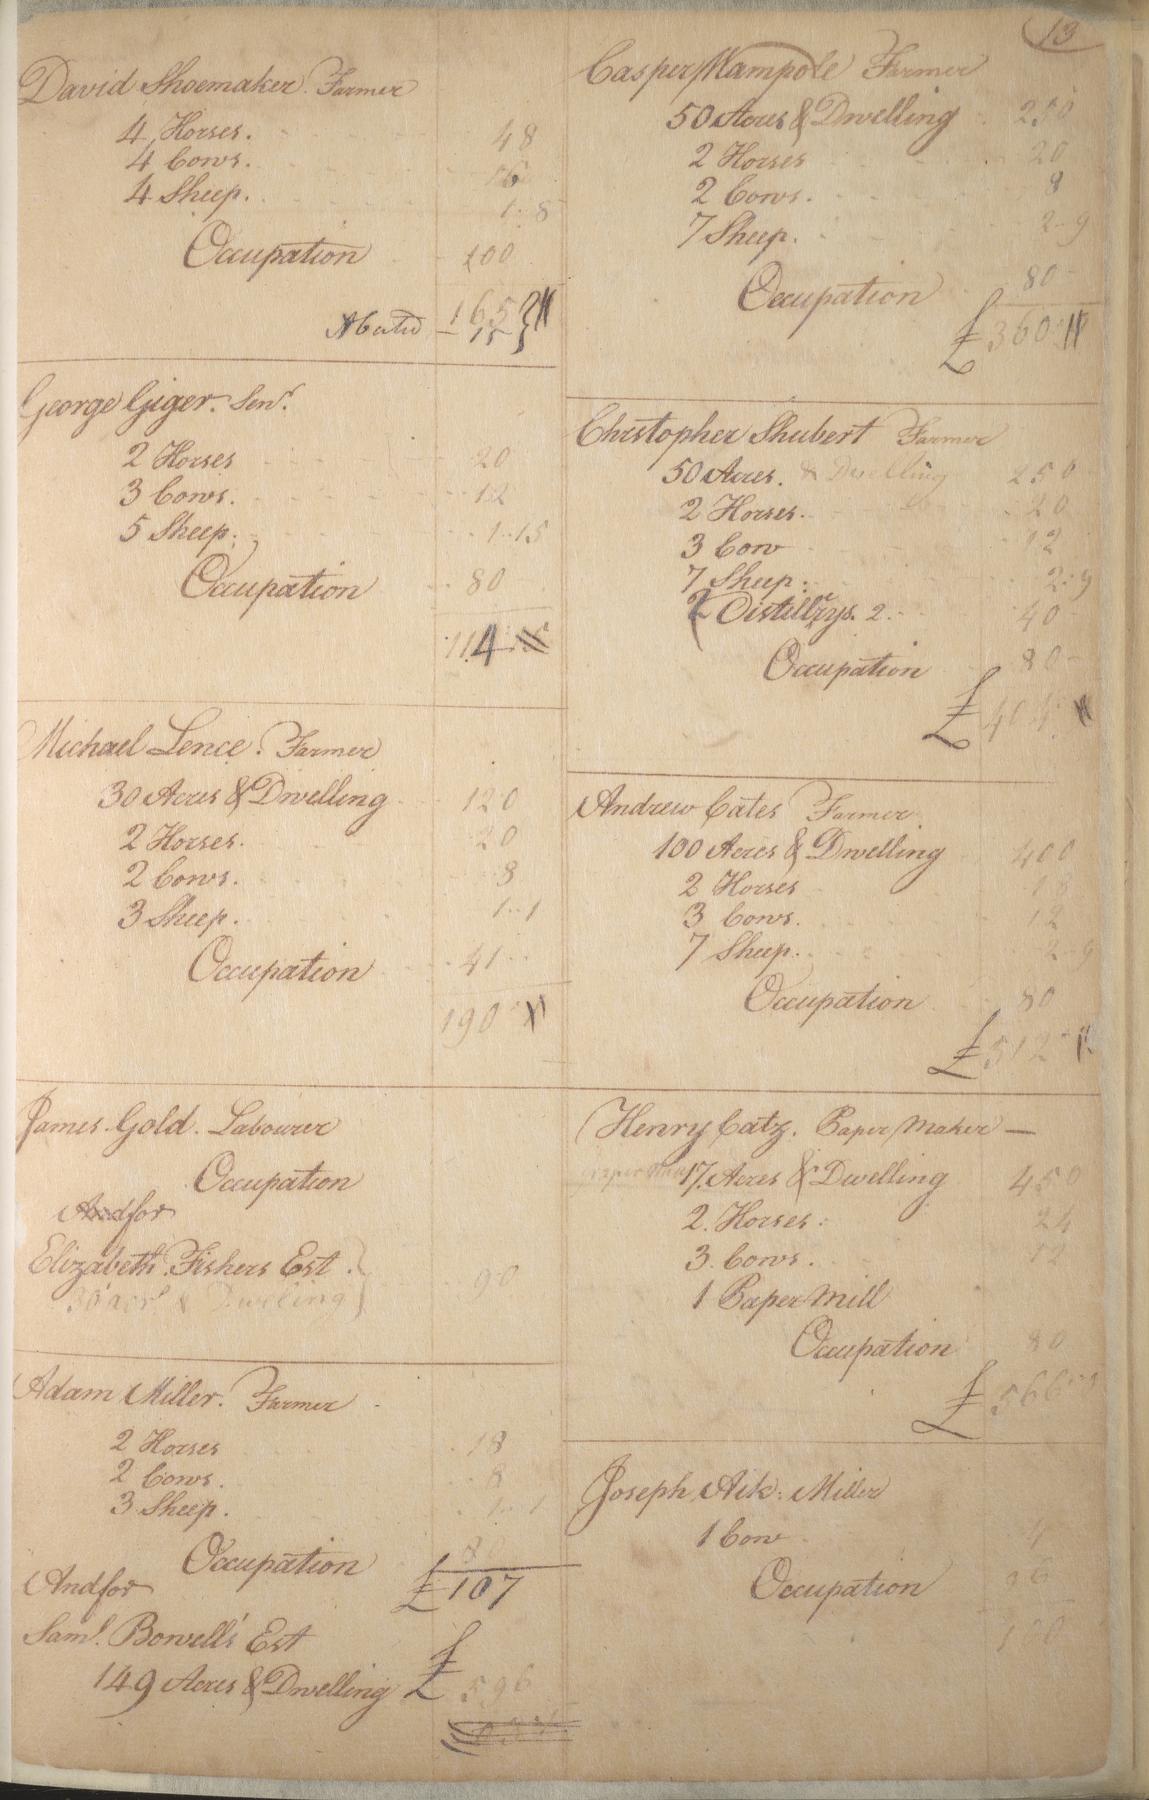 13
David Shoemaker. Farmer
4 Horses. 48
4 Cows. 16
4 Sheep. 1..8
Occupation 100
Abated 165
15
George Giger. Senr.
2 Horses 20
3 Cows. 12
5 Sheep. 1..15
Occupation 80
114
Michael Lence. Farmer
30 Acres & Dwelling 120
2 Horses. 20
2 Cows. 8
3 Sheep. 1..1
Occupation 41
190
James Gold. Labourer
Occupation
And for
Elizabeth Fishers Est.
30 acrs & Dweling 90
Adam Miller. Farmer
2 Horses 18
2 Cows. 8
3 Sheep. 1..1
Occupation 80
£ 107
And for
Saml. Bowell's Est
149 Acres & Dwelling £ 596
Casper Wampole Farmer
50 Acres & Dwelling 250
2 Horses 20
2 Cows. 8
7 Sheep. 2..9
Occupation 80
£ 360
Christopher Shubert Farmer
50 Acres. & Dwelling 250
2 Horses. 20
3 Cow 12
7 Sheep. 2..9
2 Distillerys. 2. 40
Occupation 80
£ 404
Andrew Cates Farmer
100 Acres & Dwelling 400
2 Horses 18
3 Cows. 12
7 Sheep. 2..9
Occupation 80
£ 512
Henry Catz. Paper Maker —
17. Acres & Dwelling 450
2. Horses. 24
3. Cows. 12
1 Paper Mill
Occupation 80
£ 566
Joseph Aik. Miller
1 Cow 4
Occupation